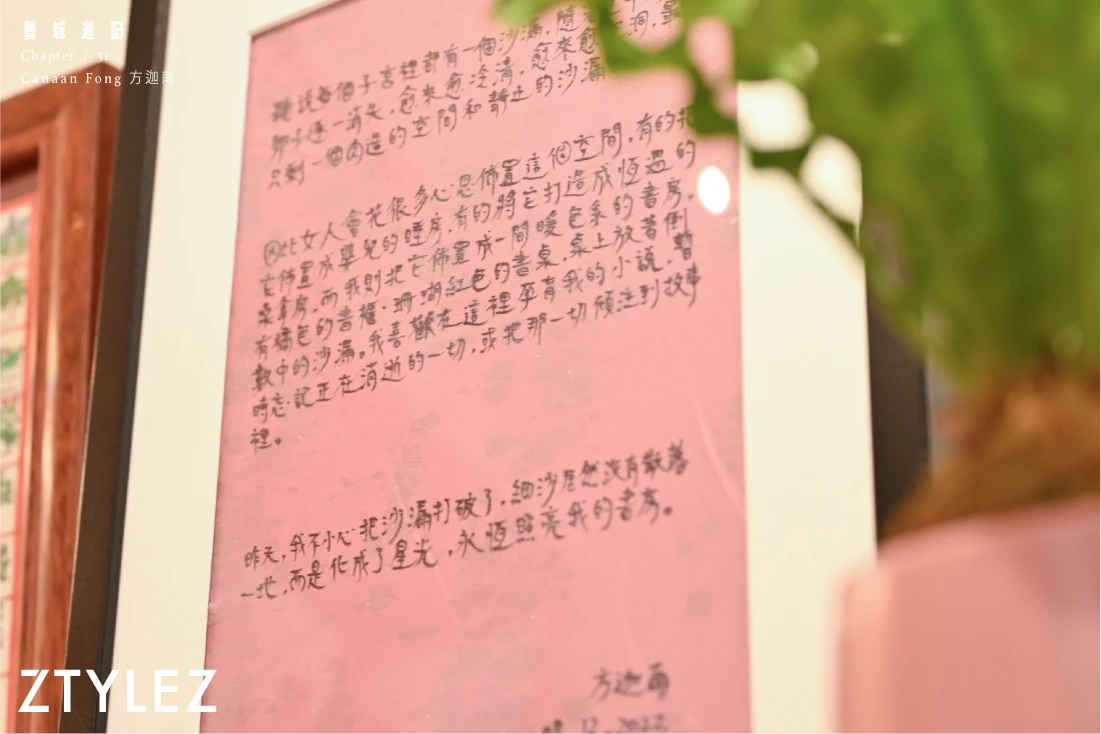 藝城遊記
Chapter / 31
Canaan Fong 方迦南
聽說每個子宮裡都有一個沙漏,隨
卵子逐一消失,愈來愈冷清,愈來愈 洞,最
只剩一個肉造的空間和靜止的沙漏
有些女人會花很多心思佈置這個空間,有的把
它佈置成嬰兒的睡房,有的將它打造成恆溫的
桑拿房,而我則把它佈置成一間暖色系的書房,
有橘色的書櫃、珊瑚紅色的書桌,桌上放著倒
數中的沙漏。我喜歡在這裡孕育我的小說,暫
時忘記正在消逝的一切,或把那一切傾注到故事
裡。
昨天,我不小心把沙漏打破了,細沙居然沒有散落
一地,而是化成了星光,永恆照亮我的書房。
方迦南
12.2022
ZTYLEZ